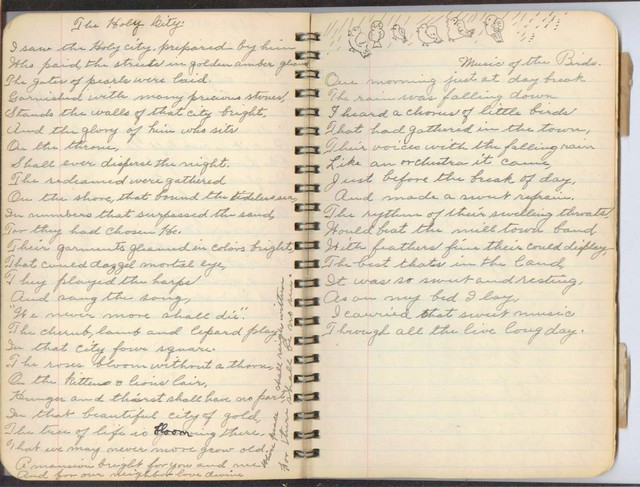 The Holy City.
I saw the Holy city, prepared by him
Who paid the streets in golden amber
The gates of pearls were laid.
Garnished with many precious stones,
Stands the walls of that city bright,
And the glory of him who sits
On the throne,
Shall ever disperse the night.
The redeamed were gathered
On the shore, that bound the tideless sea,
In numbers that surpassed the sand,
For they had chosen He.
Their garments gleamed in colors bright,
That could dazzel mortal eye,
They played the harps
And sang the song,
"We never more shall die".
The cherub, lamb and lepard play,
In that city four square.
The roses bloom without a thorn,
On the kittens & lions lair,
Hunger and thirst shall have no part,
In that beautiful city of gold,
The tree of life is blooming there,
That we may never more grow old,
A mansion bright for you and me
And for our neighbor love divine
Where peace shall reign within
For there shall be no sin.
Music of the Birds.
One morning just at day break
The rain was falling down
I heard a chorus of little birds
That had gathered in the town,
Their voices with the falling rain
Like an orchestra it came,
Just before the break of day,
And made a sweet refrain.
The rythm of their swelling throats,
Would beat the mill town band
With feathers fine their could display,
The best thats in the land,
It was so sweet and resting,
As on my bed I lay,
I carried that sweet music
Through all the live long day.